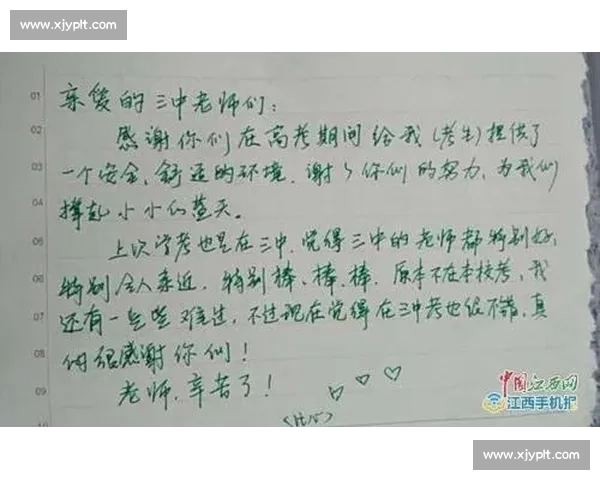 www.xjyplt.com
01
亲爱的三中老师们:
02
感谢你们在高考期间给我(考生)提供了
03
一个安全、舒适的环境.谢谢你们的努力,为我们
04
撑起小小的蓝天。
05
上次学考也是在三中,觉得三中的老师都特别好,
06
特别令人亲近,特别棒、棒、棒.原本不在本校考,我
07
还有一些些难过,不过现在觉得在三中考也很不错,真
08
的很感谢你们!
09
老师,辛苦了!
(比心)
中国江西网
江西手机报
www.xjyplt.com